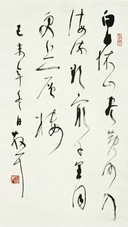 白日依山尽黄河入
海流欲穷千里目
更上一层楼
己未年冬日